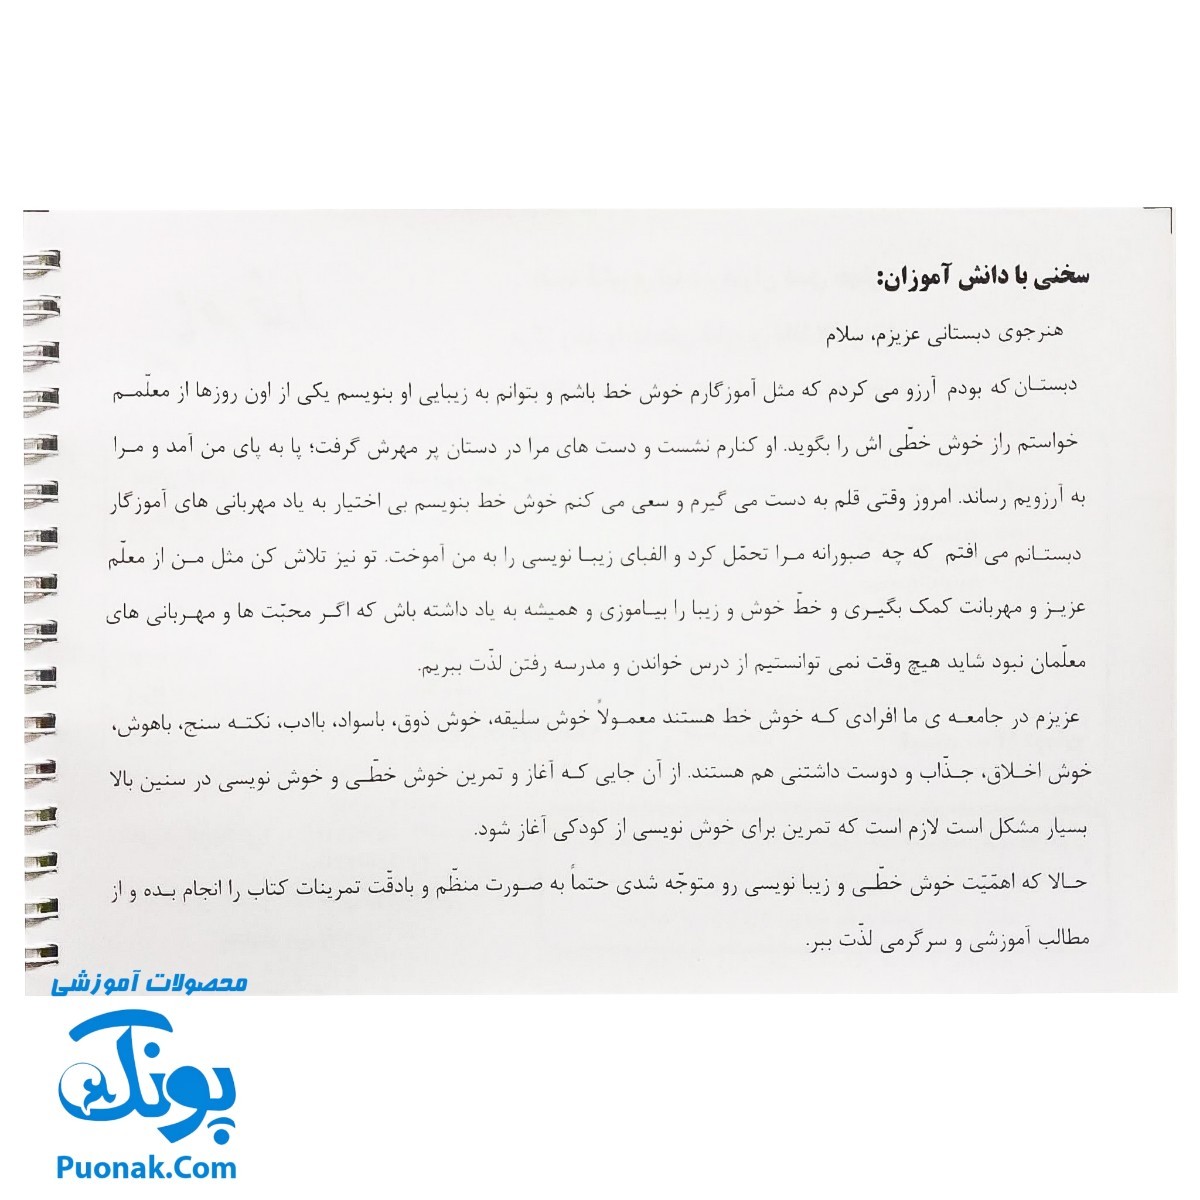 سخنی با دانش آموزان:
هنرجوی دبستانی عزیزم، سلام
دبستان که بودم آرزو می کردم که مثل آموزگارم خوش خط باشم و بتوانم به زیبایی او بنویسم یکی از اون روزها از معلّمم
خواستم راز خوش خطّی اش را بگوید. او کنارم نشست و دست های مرا در دستان پر مهرش گرفت؛ پا به پای من آمد و مرا
به آرزویم رساند. امروز وقتی قلم به دست می گیرم و سعی می کنم خوش خط بنویسم بی اختیار به یاد مهربانی های آموزگار
دبستانم می افتم که چه صبورانه مرا تحمّل کرد و الفبای زیبا نویسی را به من آموخت. تو نیز تلاش کن مثل من از معلّم
عزیز و مهربانت کمک بگیری و خطّ خوش و زیبا را بیاموزی و همیشه به یاد داشته باش که اگر محبّت ها و مهربانی های
معلّمان نبود شاید هیچ وقت نمی توانستیم از درس خواندن و مدرسه رفتن لذّت ببریم.
عزیزم در جامعه ی ما افرادی که خوش خط هستند معمولاً خوش سلیقه، خوش ذوق، باسواد، باادب، نکته سنج، باهوش،
خوش اخلاق، جذّاب و دوست داشتنی هم هستند. از آن جایی که آغاز و تمرین خوش خطّی و خوش نویسی در سنین بالا
بسیار مشکل است لازم است که تمرین برای خوش نویسی از کودکی آغاز شود.
حالا که اهمّیّت خوش خطّی و زیبا نویسی رو متوجّه شدی حتماً به صورت منظّم و بادقّت تمرینات کتاب را انجام بده و از
مطالب آموزشی و سرگرمی لذّت ببر.
محصولات آموزشی
پونک
Puonak.Com